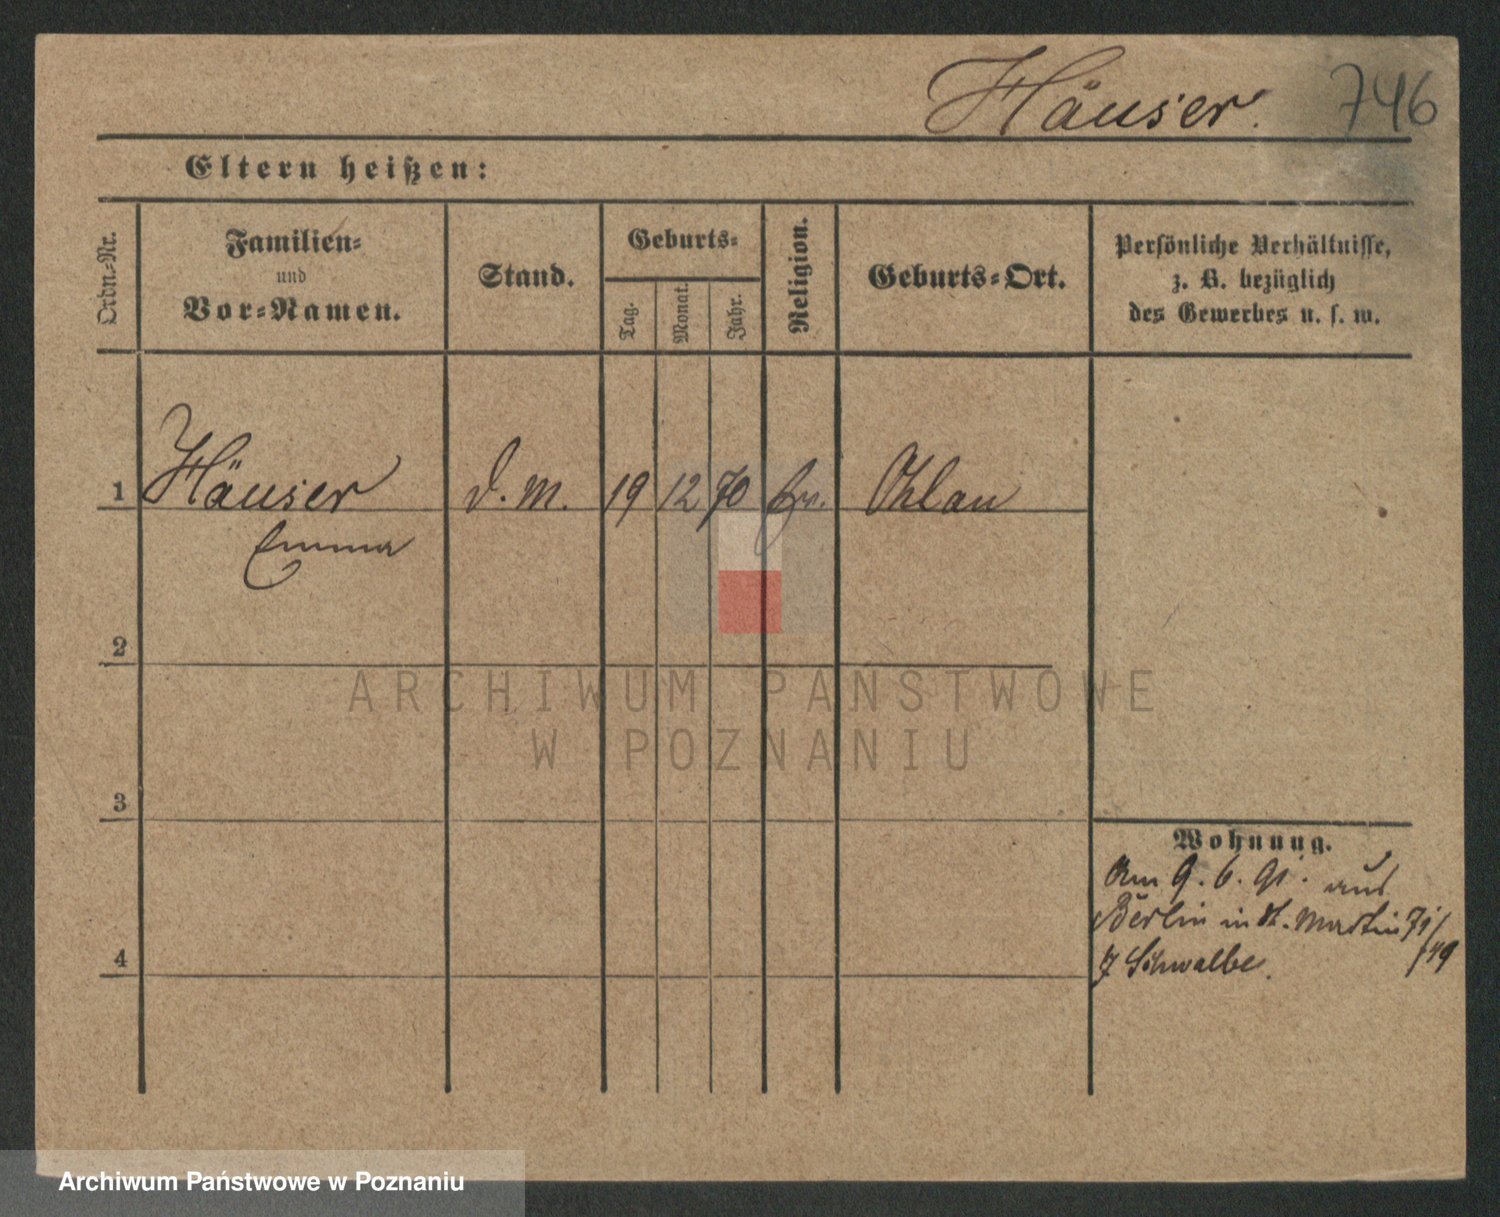 Häuser. 746
Eltern heißen:
Ordn.=Nr.
Familien=
und
Vor=Namen.
Stand.
Geburts=
Tag.
Monat.
Jahr.
Religion.
Geburts=Ort.
Persönliche Verhältnisse,
z. B. bezüglich
des Gewerbes u. s. w.
1 Häuser d. m. 19 12 70 Ohlau
Emma
2
ARCHIWUM PAŃSTWOWE
W POZNANIU
3
Wohnung.
Am 9. 6. 91. aus
Berlin in St. Martin 71/
49
Schwalbe.
4
Archiwum Państwowe w Poznaniu